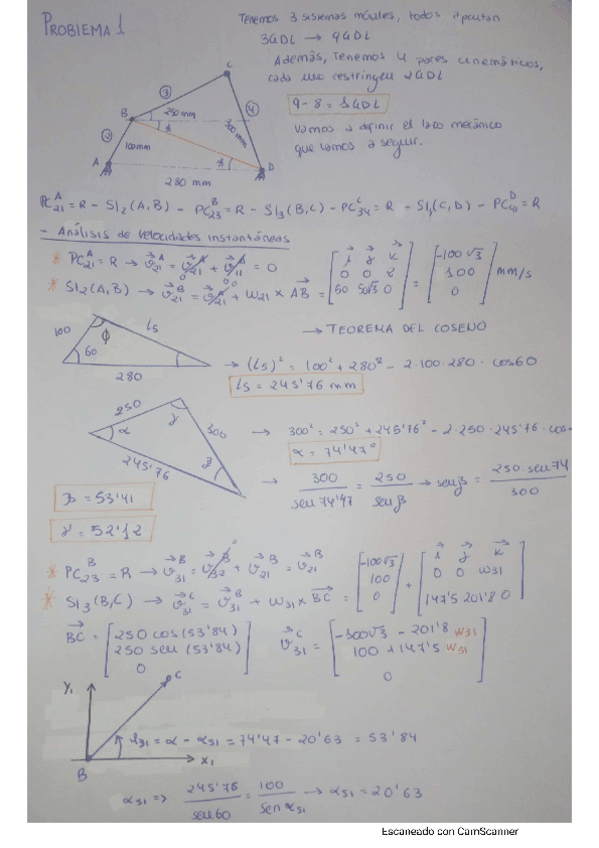 PROBLEMA 1
Tenemos 3 sistemas móviles, todos
3GDL → 9GDL
Además, tenemos 4 pares cinemáticos,
cada uno restringen 2GDL
9 - 8 = 1GDL
Vamos a definir el lazo mecánico
que vamos a seguir.
C
3
B
250 mm
4
300 mm
2
100mm
A
D
280 mm
PC21^A = R - Sl2(A,B) - PC23^B = R - Sl3(B,C) - PC34^C = R - Sl4(C,D) - PC41^D = R
- Análisis de velocidades instantáneas
* PC21^A = R → v21^A = v21^A + v11^A = 0
* Sl2(A,B) → v21^B = v21^A + w21 x AB = [i j k; 0 0 2; 50 50√3 0] = [-100√3; 100; 0] mm/s
→ TEOREMA DEL COSENO
100 l5
60 ϕ
280
→ (l5)² = 100² + 280² - 2·100·280·cos60
l5 = 245'76 mm
250
α γ 300
β
245'76
→ 300² = 250² + 245'76² - 2·250·245'76·cos
α = 74'47°
→ 300/sen74'47 = 250/senβ → senβ = 250·sen74/300
β = 53'41
γ = 52'12
* PC23^B = R → v31^B = v32^B + v21^B = v21^B
* Sl3(B,C) → v31^C = v31^B + w31 x BC = [-100√3; 100; 0] + [i j k; 0 0 w31; 147'5 201'8 0]
BC = [250 cos(53'84); 250 sen(53'84); 0]
v31^C = [-100√3 - 201'8 w31; 100 + 147'5 w31; 0]
Y1
C
= α - α51 = 74'47 - 20'63 = 53'84
B
X1
α51 => 245'76/sen60 = 100/sen α51 → α51 = 20'63
Escaneado con CamScanner